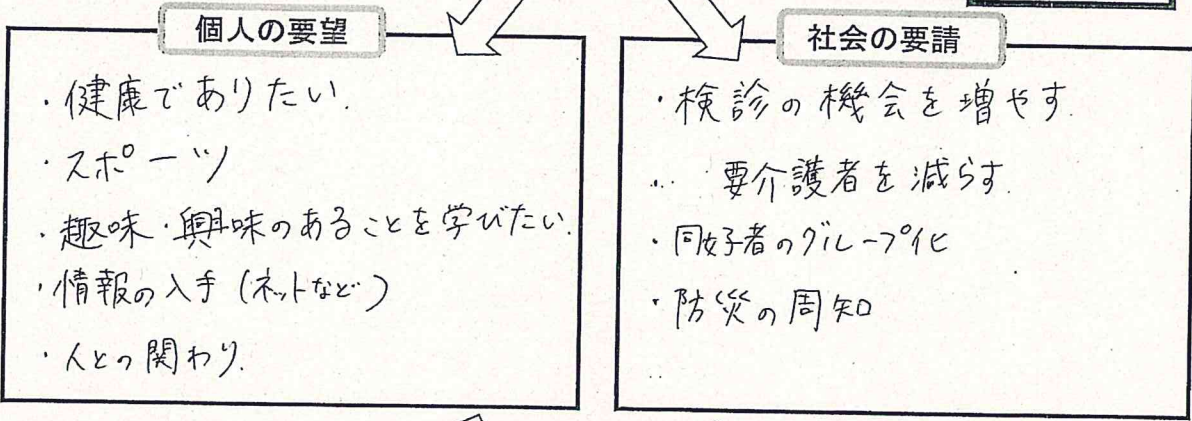 個人の要望
・健康でありたい.
・スポーツ
・趣味・興味のあることを学びたい.
・情報の入手(ネットなど)
・人との関わり.
社会の要請
・検診の機会を増やす.
‥ 要介護者を減らす.
・同好者のグループ化
・防災の周知